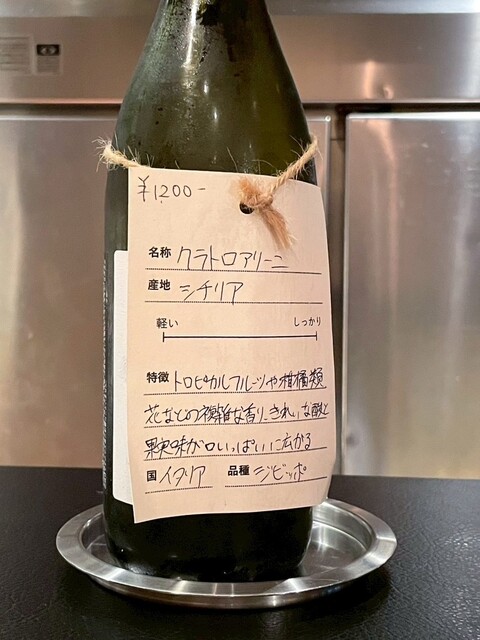 ¥1,200-
名称 クラトロアリーニ
産地 シチリア
軽い しっかり
特徴 トロピカルフルーツや柑橘類
花などの複雑な香り、きれいな酸と
果実味が口いっぱいに広がる
国 イタリア 品種 ジビッボ